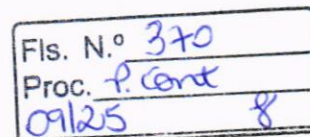 Fls. N.º 370
Proc. P. Cont
09/25